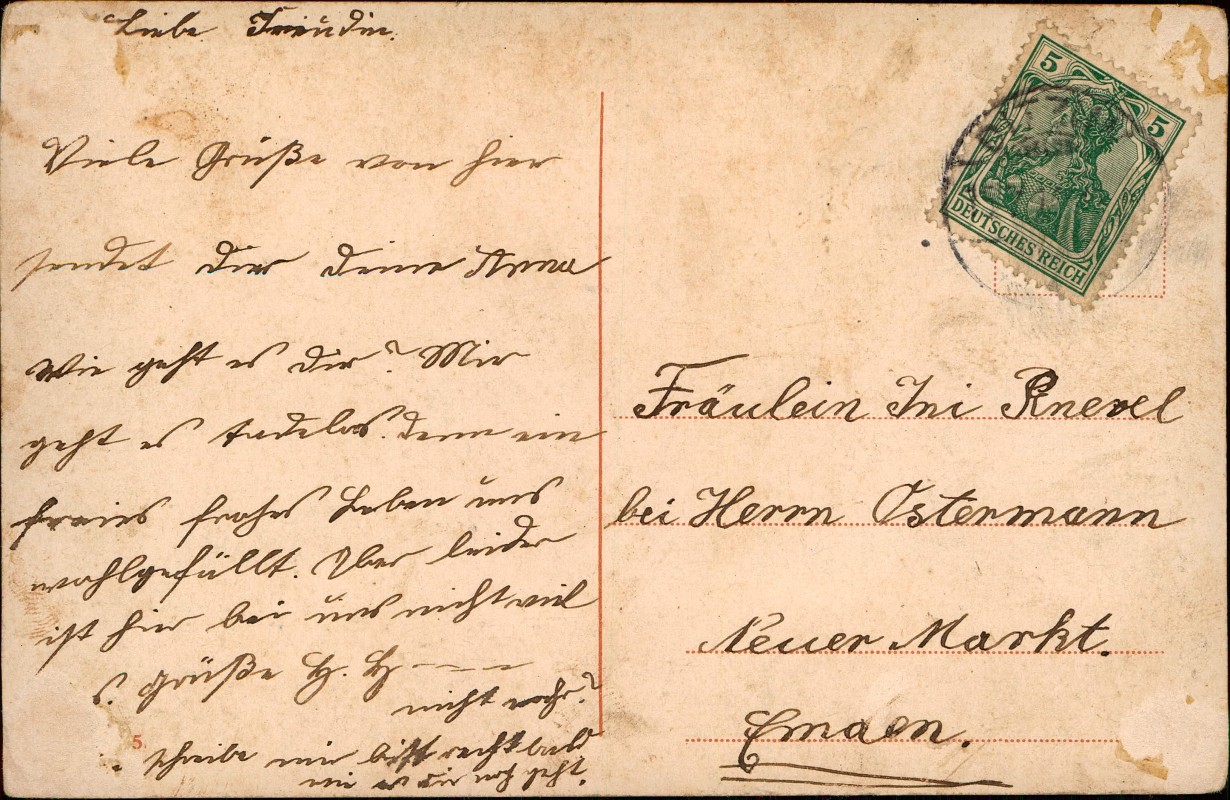 Liebe Freundin.
Viele Grüße von hier
sendet dir deine Anna
Wie geht es dir? Mir
geht es tadellos. denn ein
freies frohes Leben uns
wohlgefällt. Aber leider
ist hier bei uns nicht viel
s. Grüße H. H
nicht wahr?
schreibe mir bitt recht bald
wie es dir noch geht.
5
5 5
DEUTSCHES REICH
Fräulein Ini Knevel
bei Herrn Ostermann
Neuer Markt.
Emden.